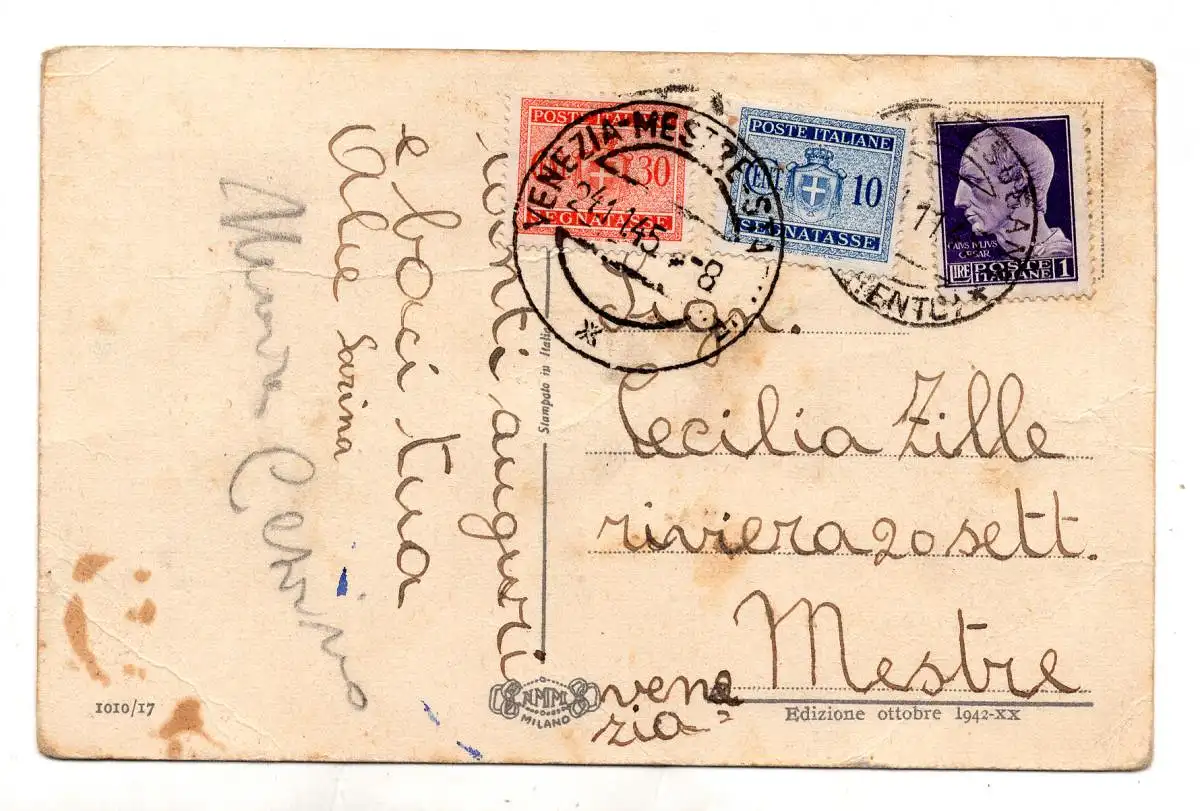 tanti auguri
e baci tua
Alie
Sarina
POSTE ITALIANE
CENT. 30
SEGNATASSE
POSTE ITALIANE
CENT. 10
SEGNATASSE
VENEZIA MESTRE
24.1.45 - 8
CAIVS IVLIVS
CAESAR
LIRE POSTE ITALIANE 1
Sign.
Cecilia Zille
riviera 20 sett.
Mestre
vene
zia
Stampato in Italia
NMM
MILANO
1010/17
Edizione ottobre 1942-XX